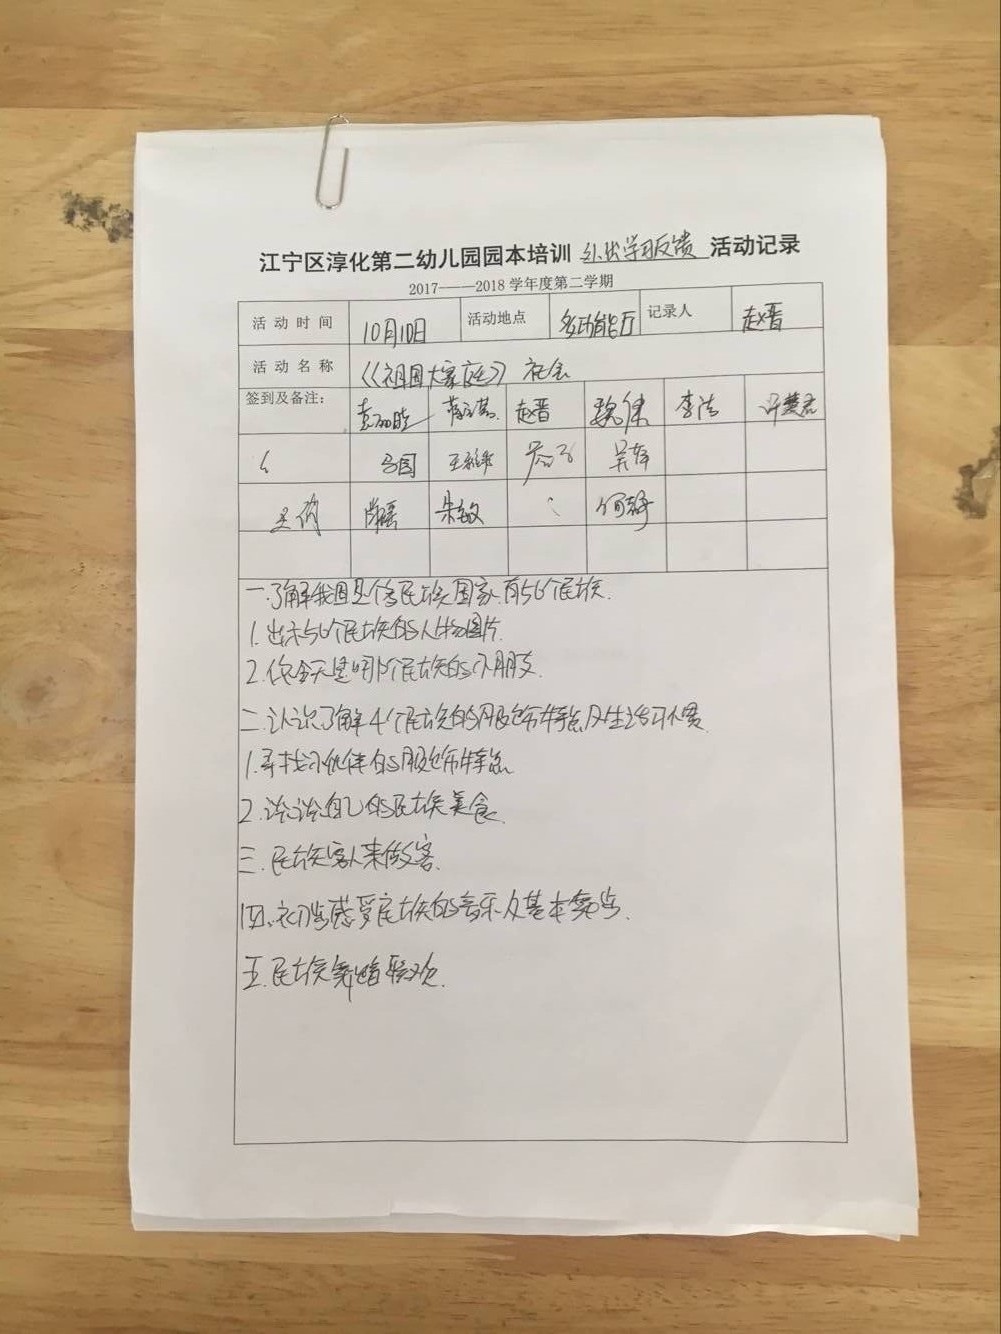 江宁区淳化第二幼儿园园本培训 外出学习反馈 活动记录
2017——2018 学年度第二学期
活动时间 10月10日 活动地点 多功能厅 记录人 赵晋
活动名称 《祖国大家庭》 社会
签到及备注： 赵晋 魏伟 李洁 许慧君
马园
朱敏 何静
一.了解我国是个多民族国家.有56个民族.
1.出示56个民族的人物图片.
2.你今天是哪个民族的小朋友.
二.认识了解4个民族的服饰特点及生活习惯.
1.寻找小伙伴的服饰特点
2.谈谈自己的民族美食.
三.民族客人来做客.
四.初步感受民族的音乐及基本舞步.
五.民族舞蹈联欢.